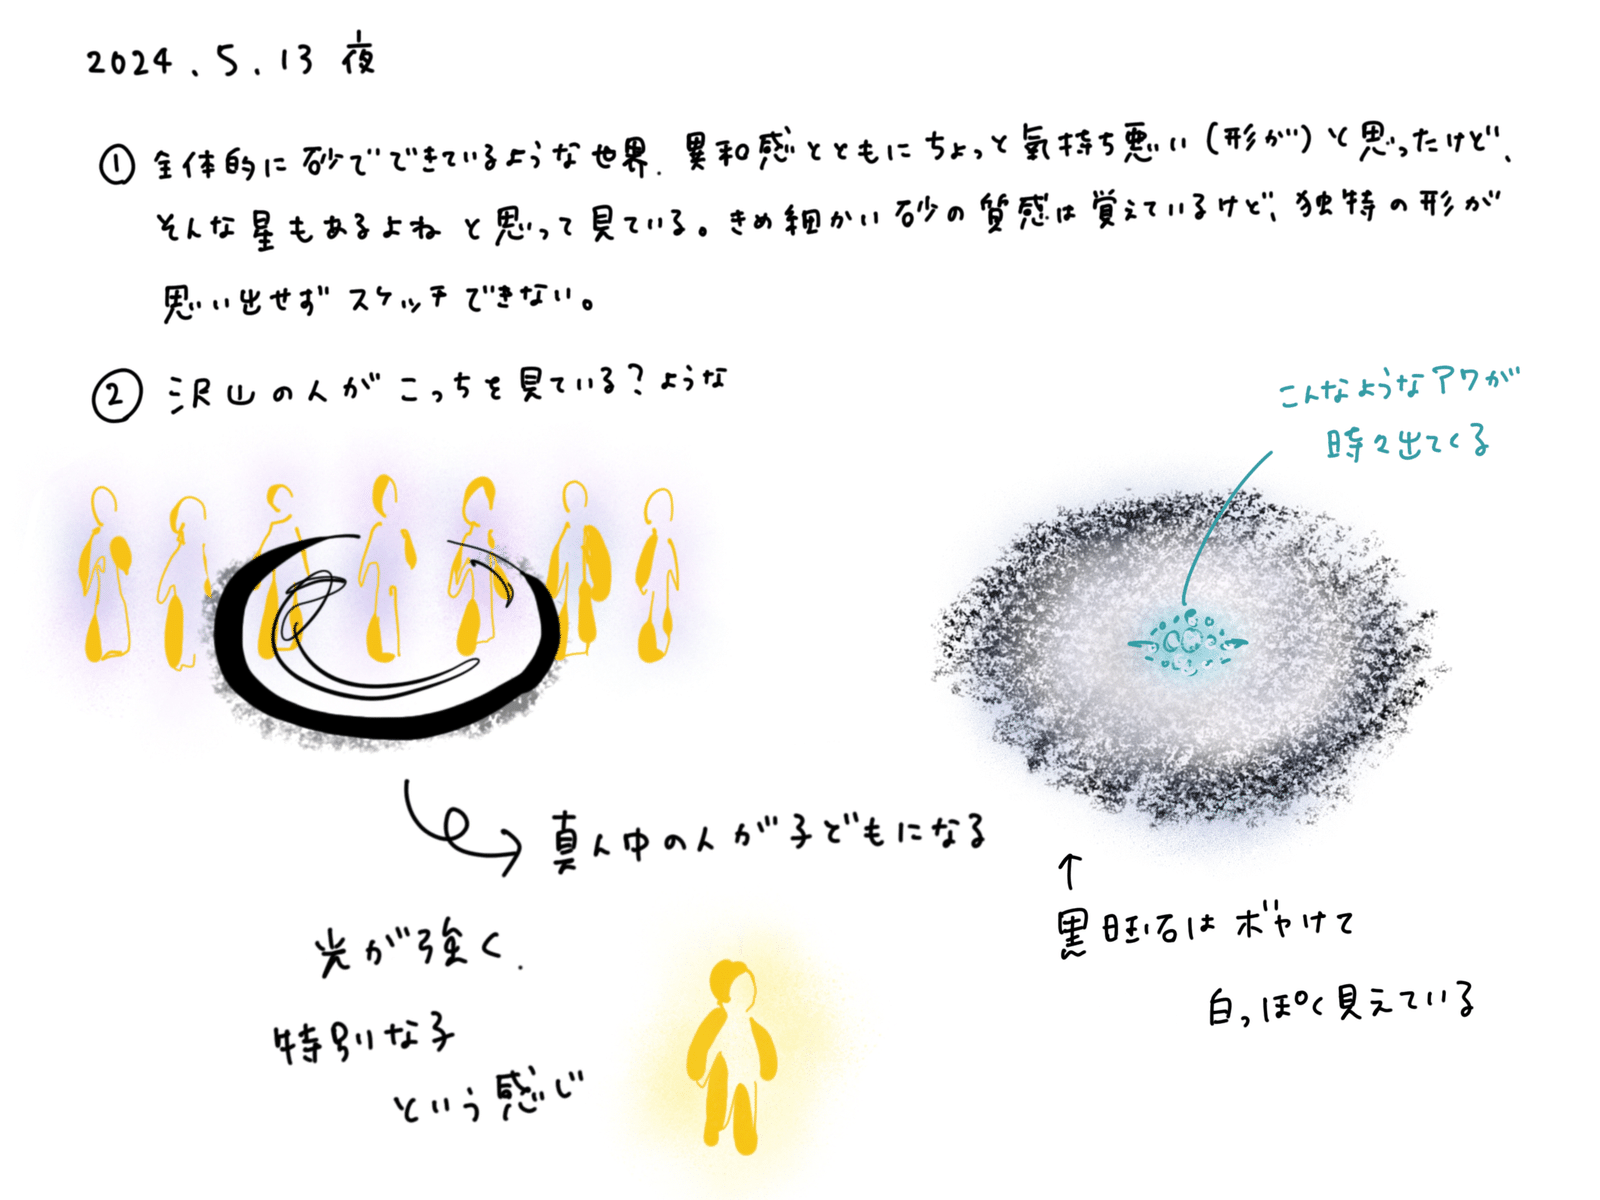 2024.5.13 夜
① 全体的に砂でできているような世界.異和感とともにちょっと氣持ち悪い(形が)と思ったけど、
そんな星もあるよね と思って見ている。きめ細かい砂の質感は覚えているけど、独特の形が
思い出せず スケッチできない。
② 沢山の人がこっちを見ている?ような
こんなようなアワが
時々出てくる
真ん中の人が子どもになる
光が強く.
特別な子
という感じ
↑
黒曜石はボヤけて
白っぽく見えている